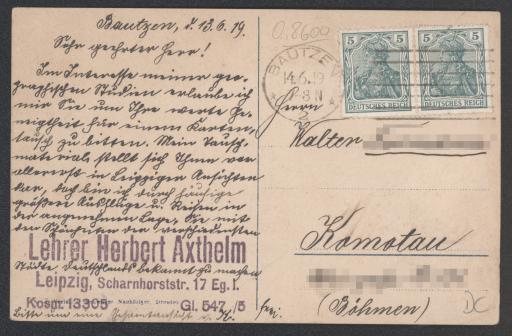 Bautzen, d. 13.6.19.
Sehr geehrter Herr!
Im Interesse meiner geo-
graphischen Studien erlaube ich
mir Sie um Ihre werte Ge-
neigtheit für einen Karten-
tausch zu bitten. Mein Tausch-
material stellt sich Ihnen vor
allererst in Leipziger Ansichten
dar, doch bin ich durch häufige
größere Ausflüge u. Reisen in
der angenehmen Lage, Sie mit
den Schönheiten der verschiedensten
Städte Deutschlands bekannt zu machen
Lehrer Herbert Axthelm
Leipzig, Scharnhorststr. 17 Eg. I.
Kosm. 13305 Gl. 547 /5
Bitte um nur Gesamtansicht
frei.
0,8600
BAUTZEN
14.6.19
7-8 N
5 5
DEUTSCHES REICH
5 5
DEUTSCHES REICH
Herrn
Walter
Komotau
(Böhmen)
DC